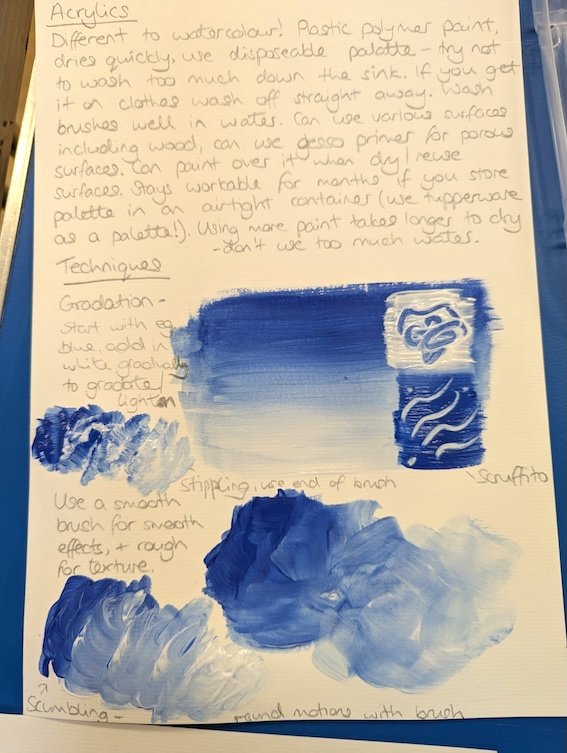 Acrylics
Different to watercolour! Plastic polymer paint,
dries quickly, use disposeable palatte - try not
to wash too much down the sink. If you get
it on clothes wash off straight away. Wash
brushes well in water. Can use various surfaces
including wood, can use gesso primer for porous
surfaces. Can paint over it when dry / reuse
surfaces. Stays workable for months if you store
palette in an airtight container (use tupperware
as a palette!). Using more paint takes longer to dry
- don't use too much water.
Techniques
Gradation -
start with eg
blue, add in
white gradually
to gradate/
lighten
Stippling, use end of brush
Scruffito
Use a smooth
brush for smooth
effects, + rough
for texture.
Scumbling - round motions with brush